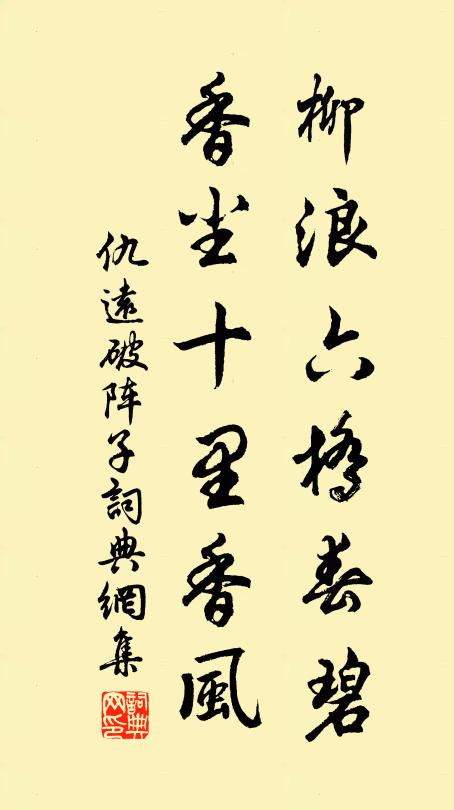 柳浪六橋春碧
香尘十里香風
仇遠破阵子詞典網集
詞典网印